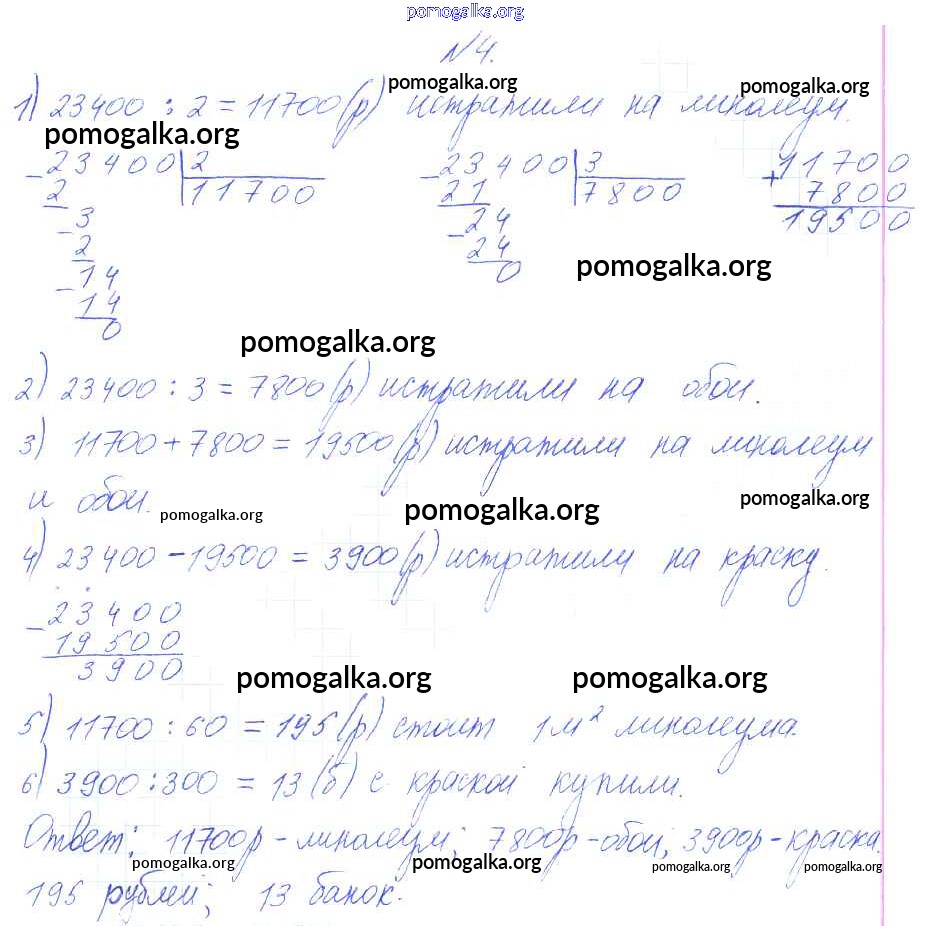 pomogalka.org
№4.
pomogalka.org pomogalka.org
1) 23400 : 2 = 11700 (р) истратили на линолеум.
pomogalka.org
- 23400 | 2 - 23400 | 3 11700
2 11700 21 7800 + 7800
- 3 - 24 19500
2 24
- 14 0 pomogalka.org
14
0
pomogalka.org
2) 23400 : 3 = 7800 (р) истратили на обои.
3) 11700 + 7800 = 19500 (р) истратили на линолеум
и обои.
pomogalka.org pomogalka.org pomogalka.org
4) 23400 - 19500 = 3900 (р) истратили на краску.
- 23400
19500
3900
pomogalka.org pomogalka.org
5) 11700 : 60 = 195 (р) стоит 1 м² линолеума.
6) 3900 : 300 = 13 (б) с краской купили.
Ответ: 11700р - линолеум; 7800р - обои; 3900р - краска.
pomogalka.org pomogalka.org pomogalka.org pomogalka.org
195 рублей; 13 банок.